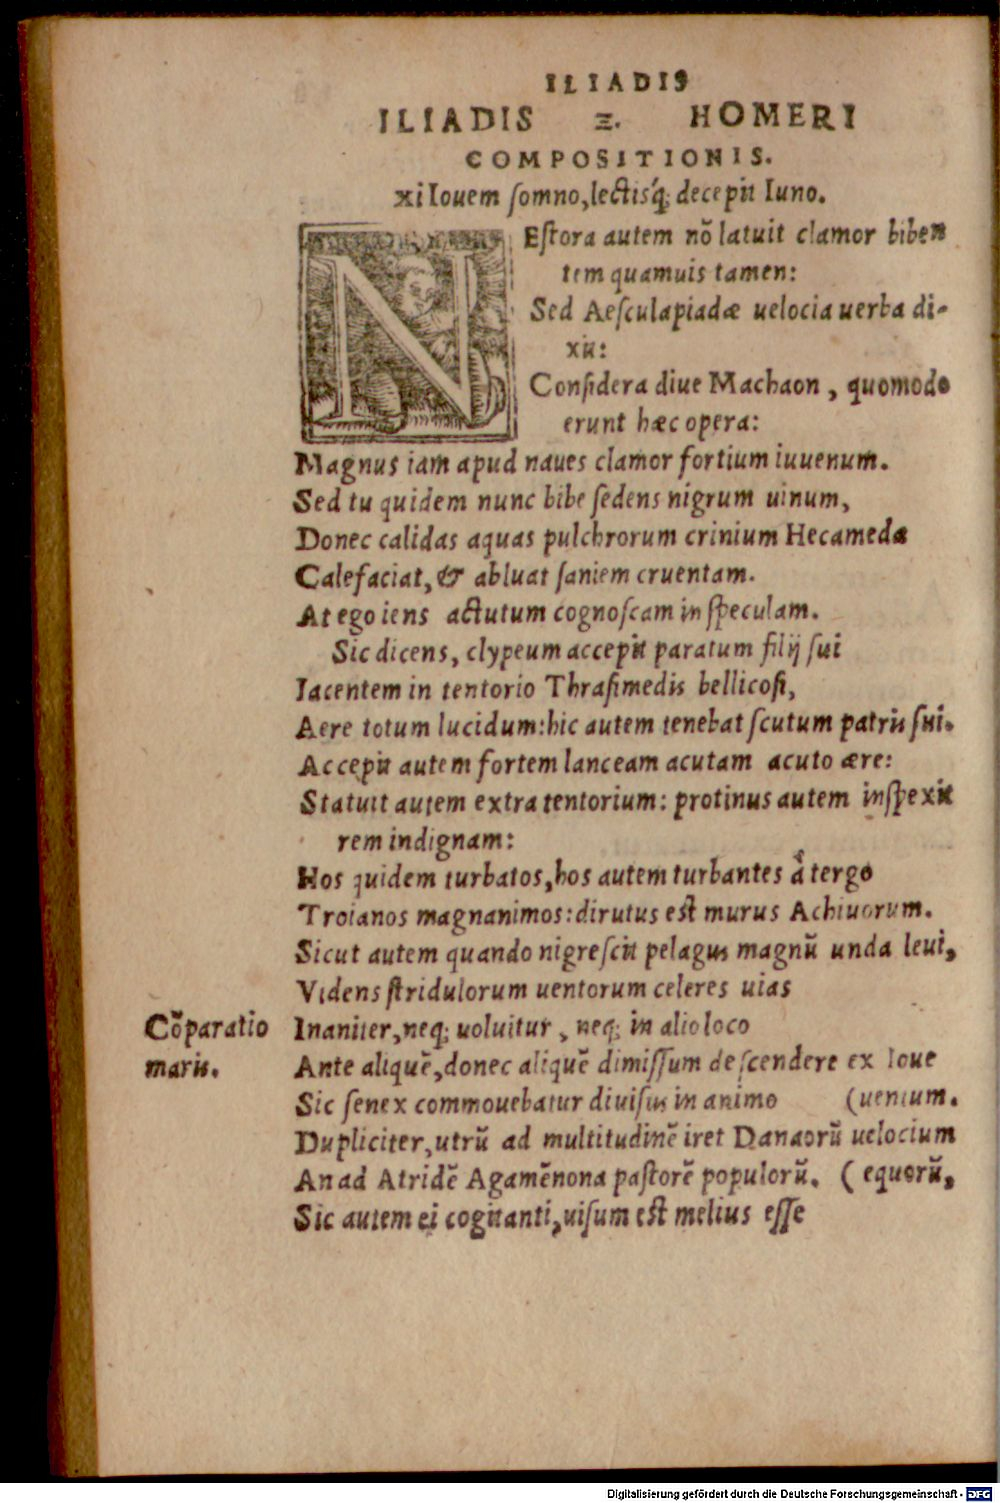 ILIADIS
ILIADIS Ξ. HOMERI
COMPOSITIONIS.
xi Iouem ſomno, lectisq́; decepit Iuno.
NEſtora autem nõ latuit clamor biben
tem quamuis tamen:
Sed Aeſculapiadæ uelocia uerba di-
xit:
Conſidera diue Machaon, quomodo
erunt hæc opera:
Magnus iam apud naues clamor fortium iuuenum.
Sed tu quidem nunc bibe ſedens nigrum uinum,
Donec calidas aquas pulchrorum crinium Hecameda
Calefaciat, & abluat ſaniem cruentam.
At ego iens actutum cognoſcam in ſpeculam.
Sic dicens, clypeum accepit paratum filij ſui
Iacentem in tentorio Thraſimedis bellicoſi,
Aere totum lucidum: hic autem tenebat ſcutum patris ſui.
Accepit autem fortem lanceam acutam acuto ære:
Statuit autem extra tentorium: protinus autem inſpexit
rem indignam:
Hos quidem turbatos, hos autem turbantes à tergo
Troianos magnanimos: dirutus eſt murus Achiuorum.
Sicut autem quando nigreſcit pelagus magnũ unda leui,
Videns ſtridulorum uentorum celeres uias
Cõparatio Inaniter, neq; uoluitur, neq; in alio loco
maris. Ante aliquẽ, donec aliquẽ dimiſſum deſcendere ex Ioue
Sic ſenex commouebatur diuiſus in animo (uentum.
Dupliciter, utrũ ad multitudinẽ iret Danaorũ uelocium
An ad Atridẽ Agamẽnona paſtorẽ populorũ. (equorũ,
Sic autem ei cogitanti, uiſum eſt melius eſſe
Digitalisierung gefördert durch die Deutsche Forschungsgemeinschaft - DFG